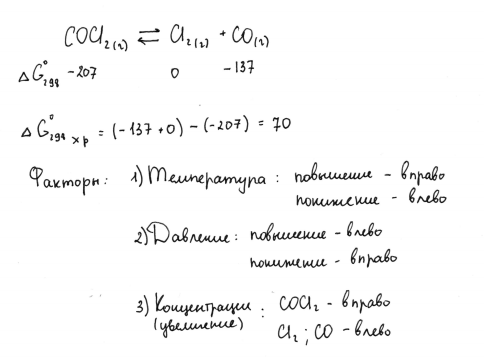 COCl₂(г) ⇄ Cl₂(г) + CO(г)
ΔG°₂₉₈ -207 0 -137
ΔG°₂₉₈ хр = (-137+0) - (-207) = 70
Факторы: 1) Температура: повышение - вправо
понижение - влево
2) Давление: повышение - влево
понижение - вправо
3) Концентрации : COCl₂ - вправо
(увеличение) Cl₂ ; CO - влево